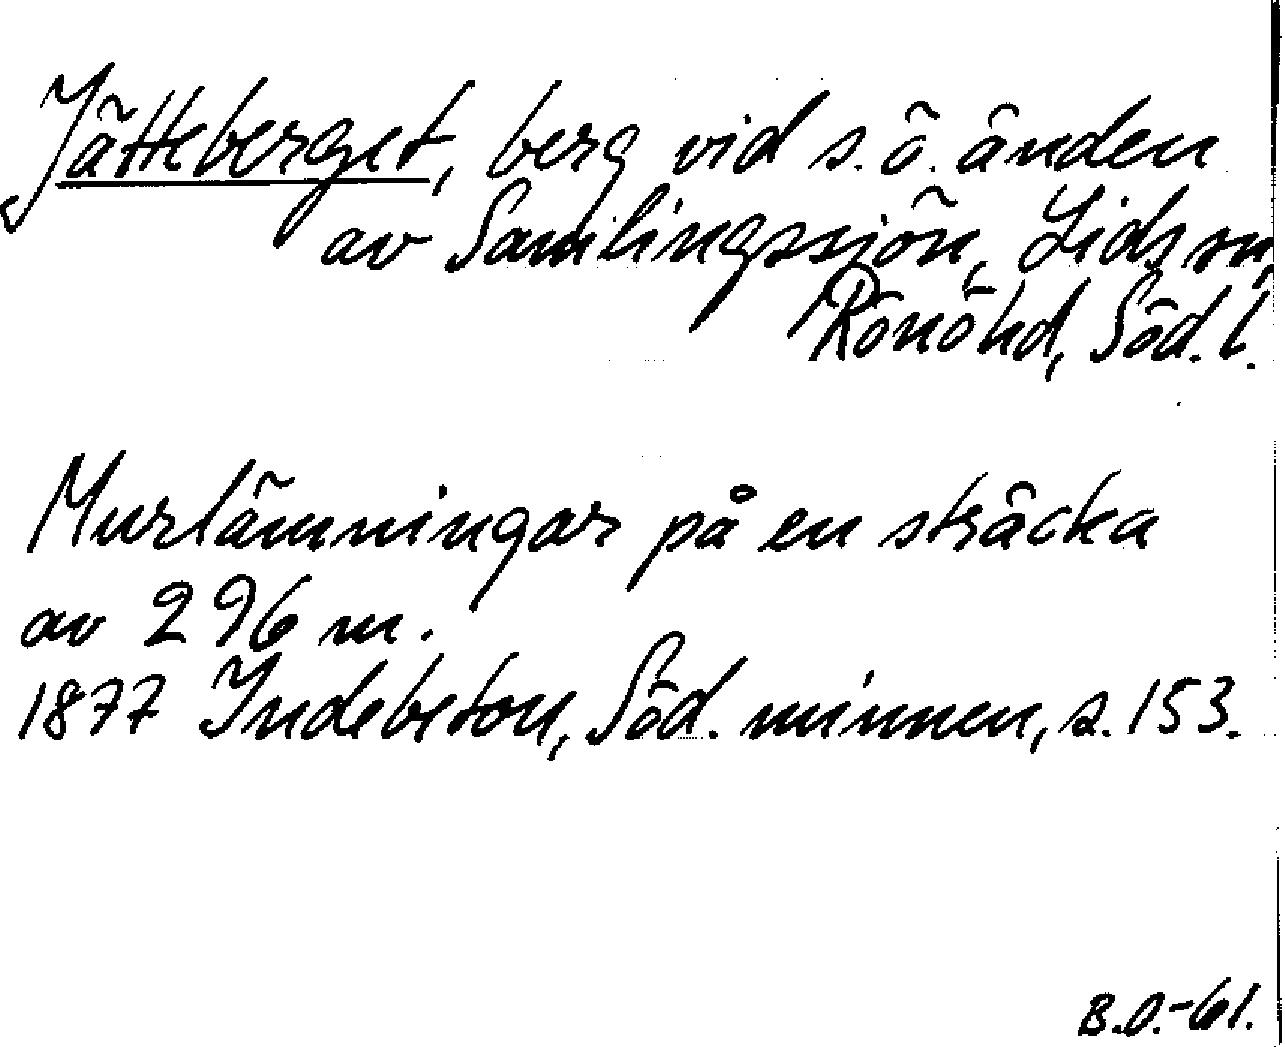 Jätteberget, berg vid s.ö. änden
av Samlingssjön, Lids sn,
Rönöhd, Söd. l.
Murlämningar på en sträcka
av 296 m.
1877 Indebetou, Söd. minnen, s. 153.
B.O.-61.